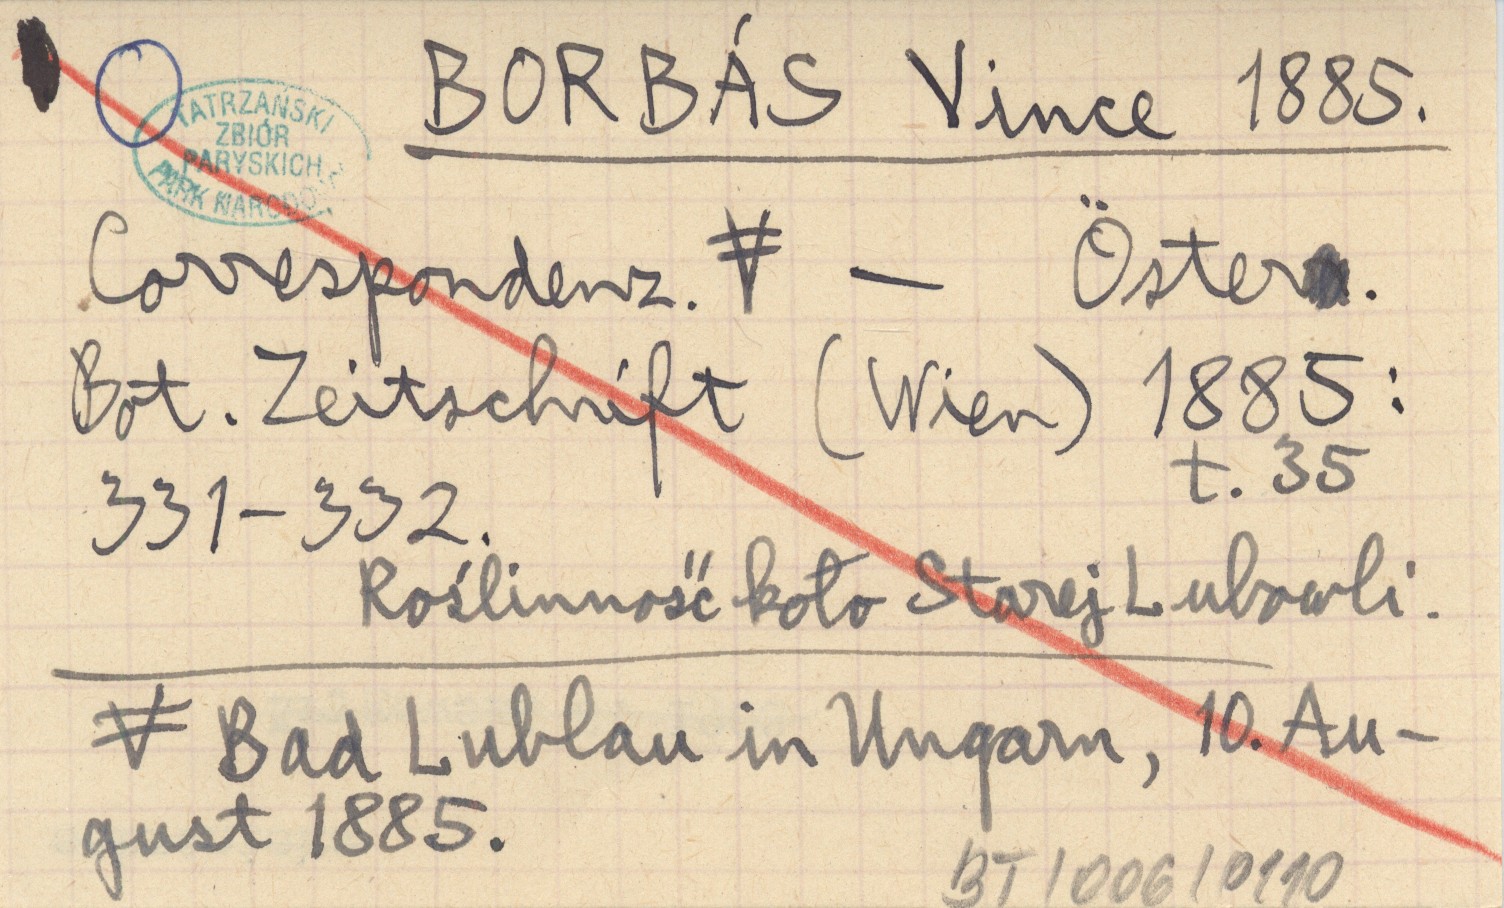 BORBÁS Vince 1885.
TATRZAŃSKI
ZBIÓR
PARYSKICH
PARK NARODOW
Correspondenz. — Österr.
Bot. Zeitschrift (Wien) 1885:
t. 35
331-332.
Roślinność koło Starej Lubowli.
Bad Lublau in Ungarn, 10. Au-
gust 1885.
BT/006/0110